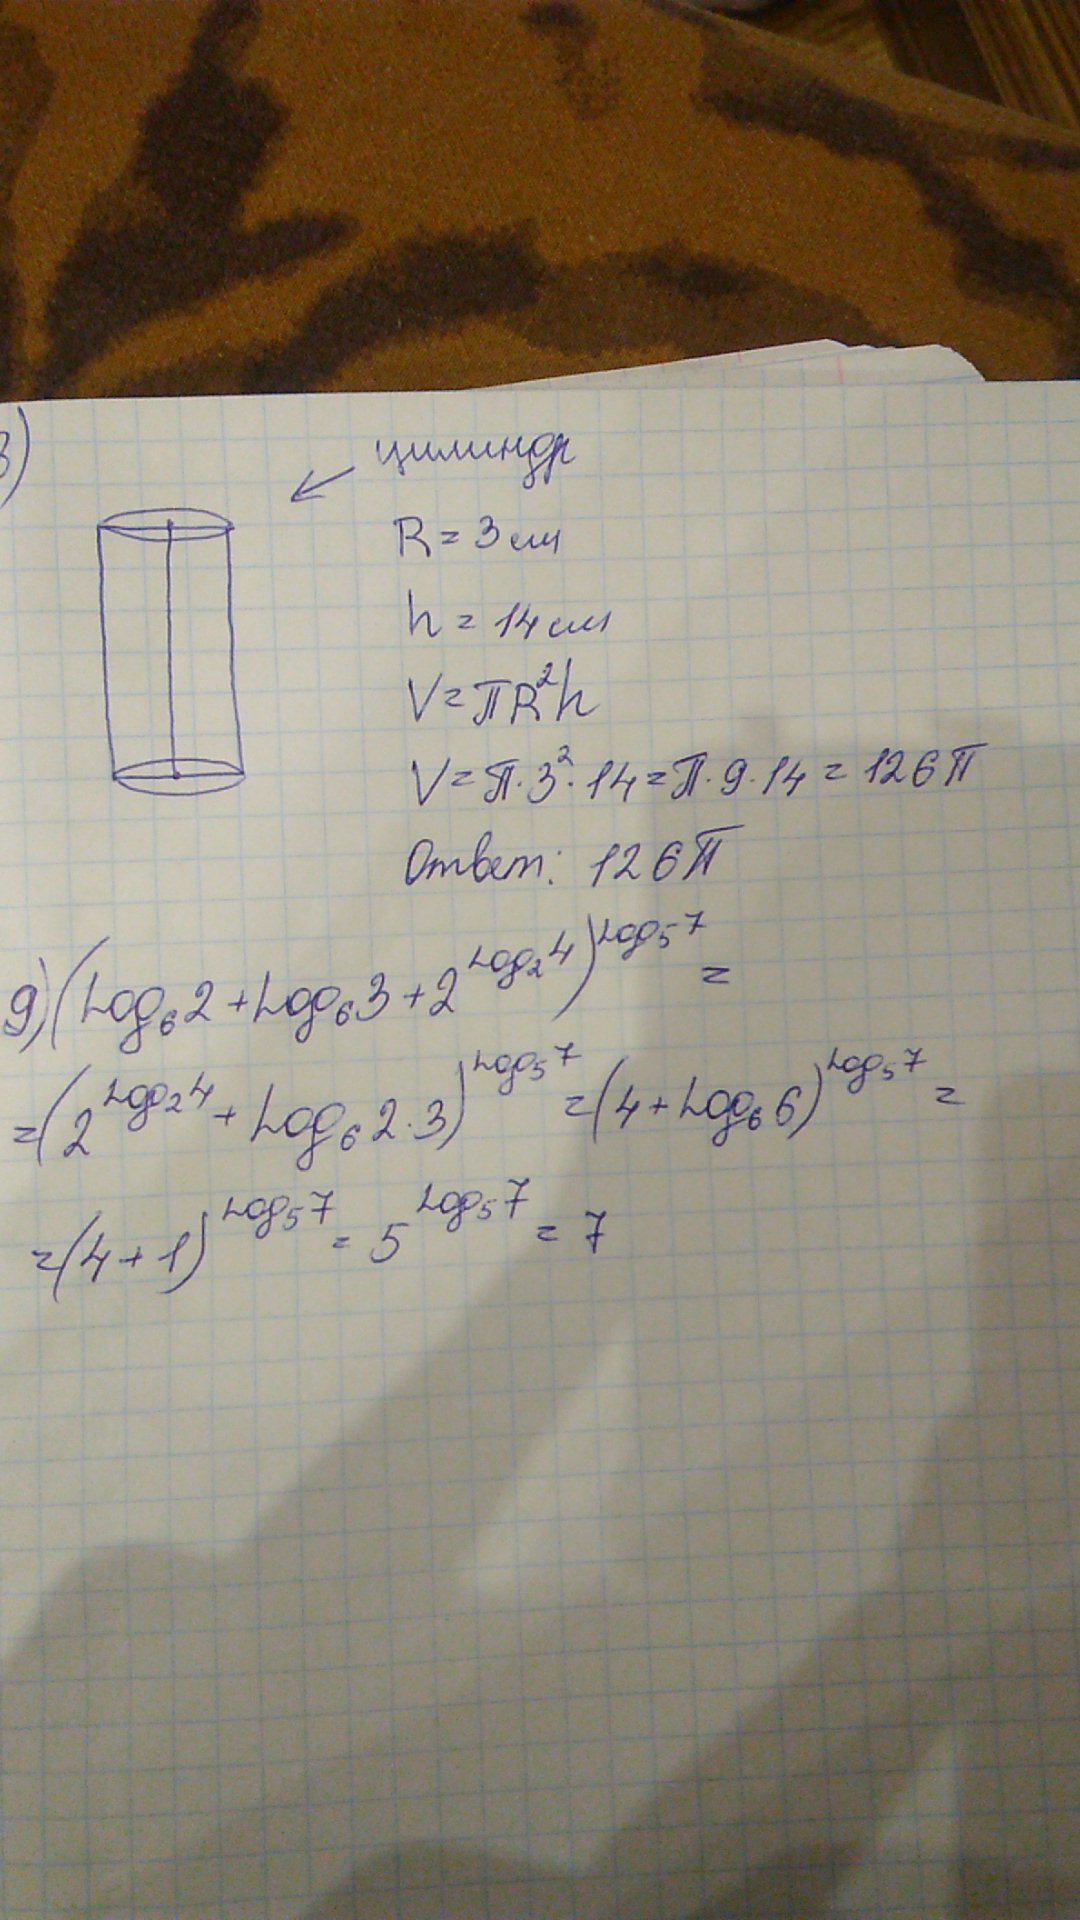 3)
цилиндр
R = 3 см
h = 14 см
V = πR²h
V = π · 3² · 14 = π · 9 · 14 = 126π
Ответ: 126π
9) (Log₆2 + Log₆3 + 2^(Log₂4))^(Log₅7) =
= (2^(Log₂4) + Log₆2·3)^(Log₅7) = (4 + Log₆6)^(Log₅7) =
= (4 + 1)^(Log₅7) = 5^(Log₅7) = 7